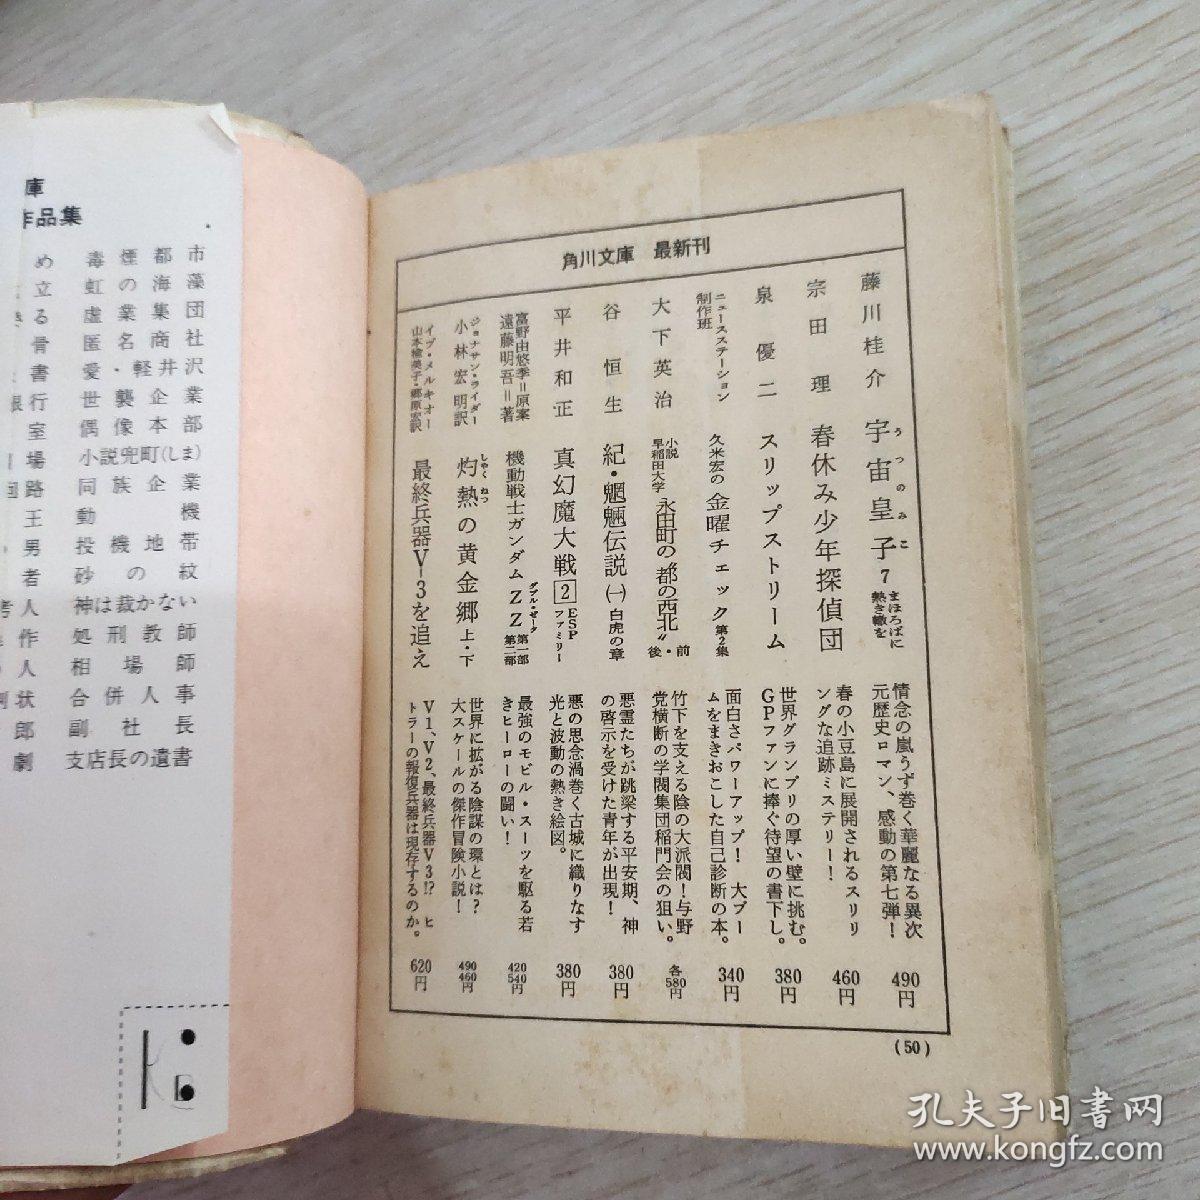 角川文庫 最新刊
藤川桂介 宇宙皇子 7 まほろばに熱き轍を 情念の嵐うず巻く華麗なる異次元歴史ロマン、感動の第七弾! 490円
うつのみこ
宗田理 春休み少年探偵団 春の小豆島に展開されるスリリングな追跡ミステリー! 460円
泉優二 スリップストリーム 世界グランプリの厚い壁に挑む。GPファンに捧ぐ待望の書下し。 380円
ニュースステーション制作班 久米宏の金曜チェック 第2集 面白さパワーアップ! 大ブームをまきおこした自己診断の本。 340円
大下英治 小説早稲田大学 永田町の〝都の西北〟 前・後 竹下を支える陰の大派閥!与野党横断の学閥集団稲門会の狙い。 各580円
谷恒生 紀・魍魎伝説 (一) 白虎の章 悪霊たちが跳梁する平安期、神の啓示を受けた青年が出現! 380円
平井和正 真幻魔大戦 2 ESPファミリー 悪の思念渦巻く古城に織りなす光と波動の熱き絵図。 380円
富野由悠季=原案 遠藤明吾=著 機動戦士ガンダムZZ 第一部 第二部 最強のモビル・スーツを駆る若きヒーローの闘い! 420 540円
ダブル・ゼータ
ジョナサン・ライダー 小林宏明訳 灼熱の黄金郷 上・下 世界に拡がる陰謀の環とは? 大スケールの傑作冒険小説! 490 460円
しゃくねつ
イブ・メルキオー 山本楡美子・郷原宏訳 最終兵器V-3を追え V1、V2、最終兵器V3!? ヒトラーの報復兵器は現存するのか。 620円
(50)
庫
作品集
め 毒煙都市
立 虹の海藻
る 虚業集団
骨 匿名商社
書 愛・軽井沢
銀行 世襲企業
室 偶像本部
場 小説兜町(しま)
回路 同族企業
王 動機
男 投機地帯
者 砂の紋
人 神は裁かない
作 処刑教師
人 相場師
状 合併人事
郎 副社長
劇 支店長の遺書
孔夫子旧书网
www.kongfz.com